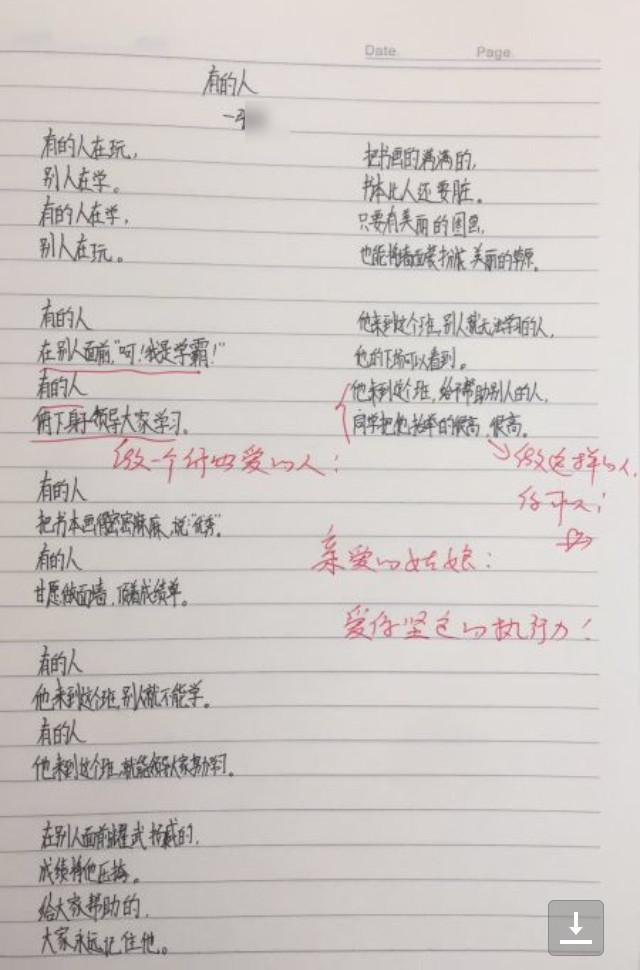 Date.
Page.
有的人
有的人在玩，
别人在学。
有的人在学，
别人在玩。
有的人
在别人面前，"呵！我是学霸！"
有的人
俯下身子领导大家学习。
做一个付出爱的人！
有的人
把书本画得密密麻麻，说："优秀"。
有的人
甘愿做面墙，顶着成绩单。
有的人
他来到这个班，别人就不能学。
有的人
他来到这个班，就能领导大家努力学习。
在别人面前耀武扬威的，
成绩将他压垮。
给大家帮助的，
大家永远记住他。
把书画的满满的，
书本比人还要脏。
只要有美丽的图画，
也能将墙面装扮成美丽的草原。
他来到这个班，别人就无法学习的人，
他的下场可以看到。
他来到这个班，给予帮助别人的人，
同学把他抬举的很高，很高。
做这样的人，
亲爱的姑娘：
爱你坚定的执行力！